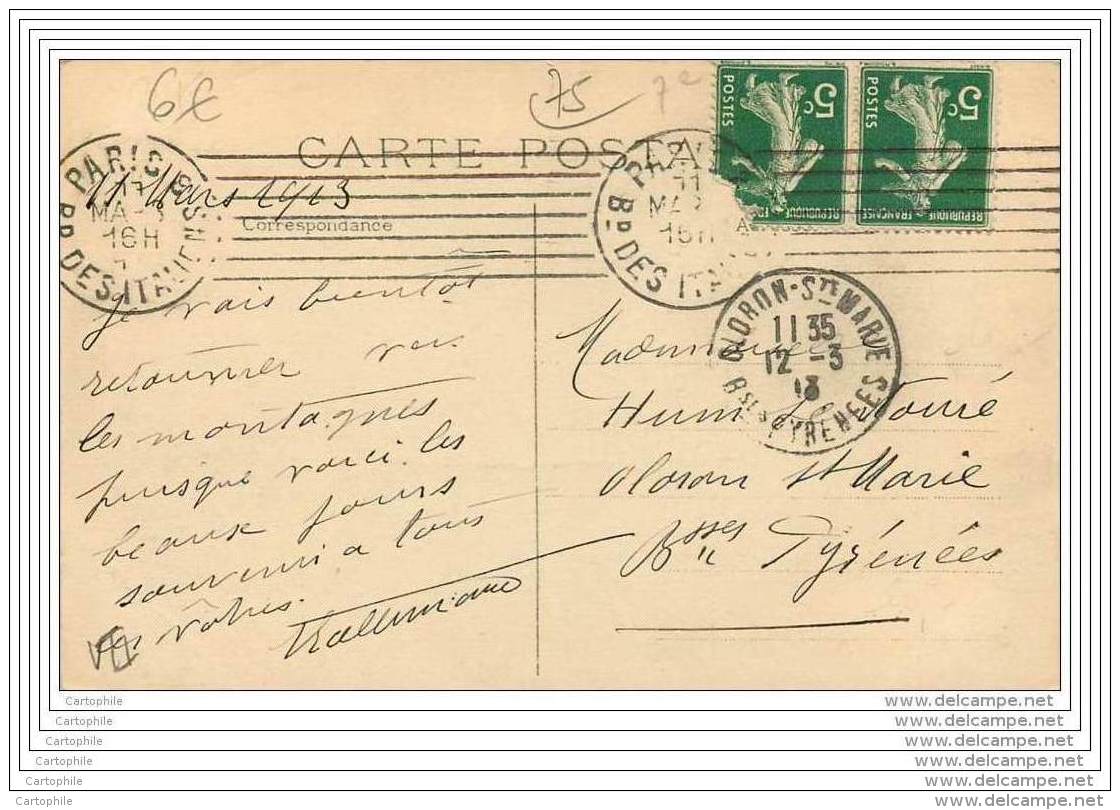 6€
75
7e
CARTE POSTA
Correspondance
11 Mars 1913
PARIS
16H
Bd DES ITALIENS
PARIS
11
16H
Bd DES ITAL
5c
POSTES
REPUBLIQUE FRANÇAISE
5c
POSTES
REPUBLIQUE
OLORON-Ste MARIE
11 35
12 -3
13
Bses PYRENEES
Je vais bientôt
retourner vers
les montagnes
puisque voici les
beaux jours
souvenir a tous
les vôtres.
Mademoiselle
Oloron St Marie
Bsses Pyrénées
VII
Cartophile
Cartophile
Cartophile
Cartophile
Cartophile
Cartophile
www.delcampe.net
www.delcampe.net
www.delcampe.net
www.delcampe.net
www.delcampe.net
www.delcampe.net